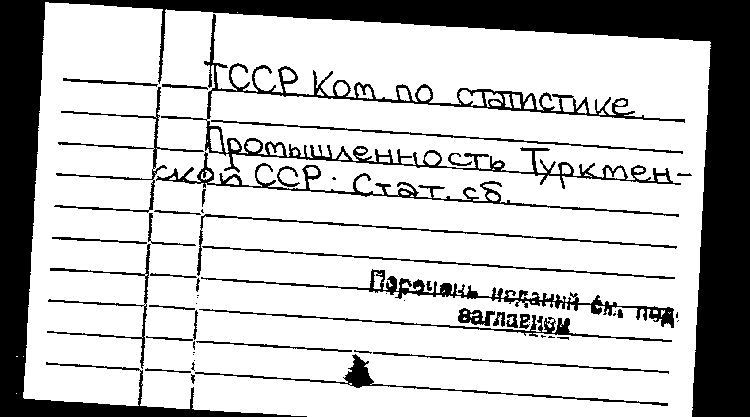 ТССР Ком. по статистике.
Промышленность Туркмен-
ской ССР: Стат. сб.
Перечень изданий см. под
заглавием